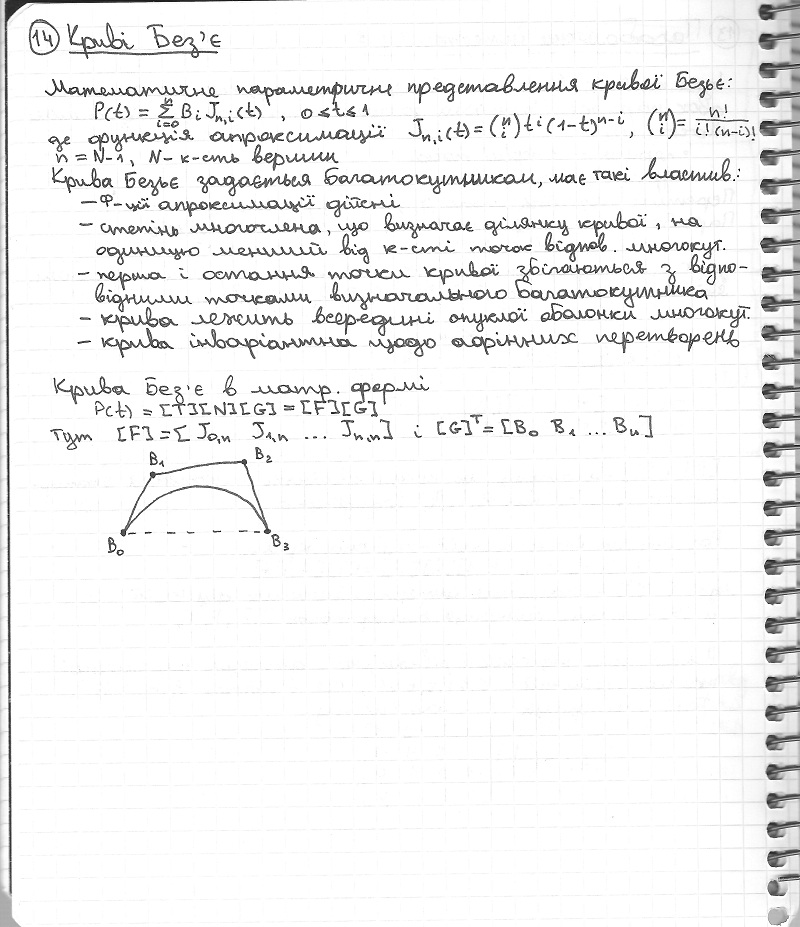 14 Криві Без'є
Математичне параметричне представлення кривої Безьє:
P(t) = Σⁿᵢ₌₀ Bᵢ Jₙ,ᵢ(t) , 0≤t≤1
де функція апроксимації Jₙ,ᵢ(t) = (ⁿᵢ) tⁱ (1-t)ⁿ⁻ⁱ, (ⁿᵢ) = n!/i!(n-i)!
n = N-1, N- к-сть вершин
Крива Безьє задається багатокутником, має такі властив.:
- Ф-ції апроксимації дійсні
- степінь многочлена, що визначає ділянку кривої, на
одиницю менший від к-сті точок відпов. многокут.
- перша і остання точки кривої збігаються з відпо-
відними точками визначального багатокутника
- крива лежить всередині опуклої оболонки многокут.
- крива інваріантна щодо афінних перетворень
Крива Без'є в матр. формі
P(t) = [T][N][G] = [F][G]
Тут [F]=[J₀,ₙ J₁,ₙ ... Jₙ,ₙ] і [G]ᵀ= [B₀ B₁ ... Bₙ]
B₁ B₂
B₀ B₃